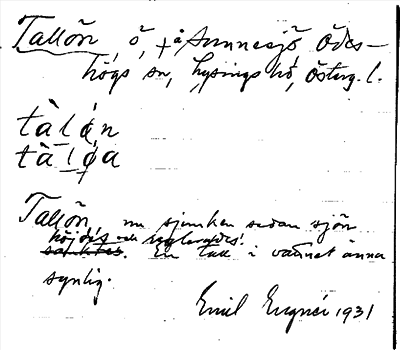 Tallön, ö, + å Sunnesjö, Ödes-
högs sn, Lysings hd, Österg. l.
tàlǿn
tàlǿa
Tallön, nu sjunken sedan sjön
höjdes och reglerades.
sänktes. En tall i vattnet ännu
synlig.
Emil Engnér 1931